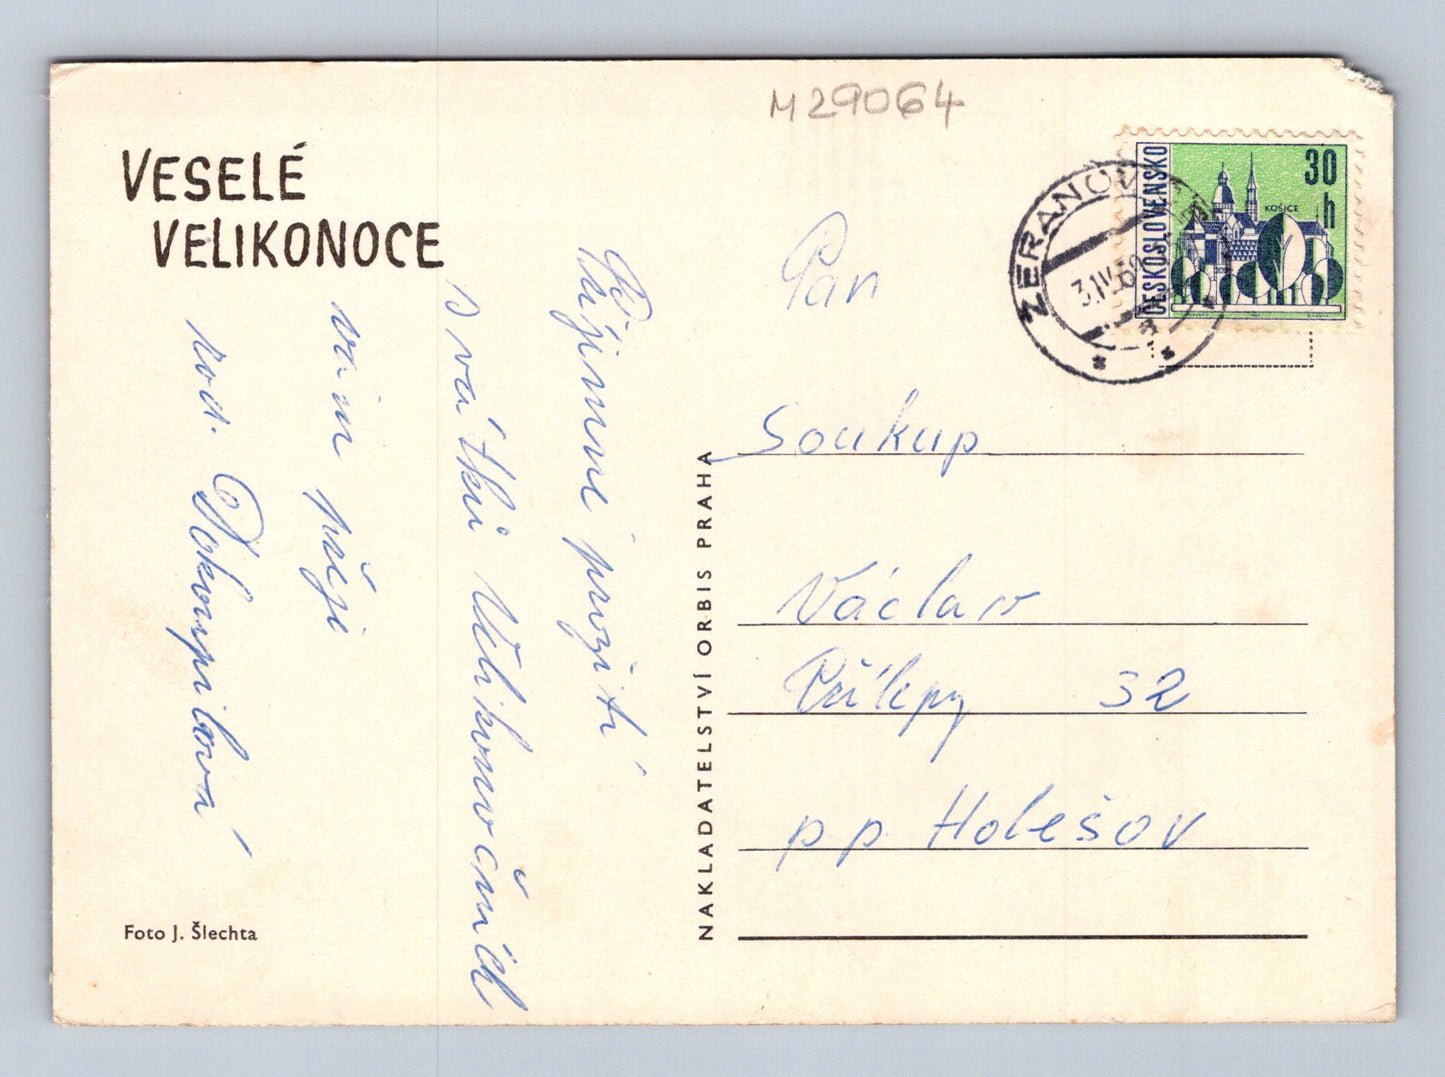 M29064
VESELÉ
VELIKONOCE
Příjemné prožití
svátků Velikonočních
vám přeji
rod. Dokoupilová
Foto J. Šlechta
NAKLADATELSTVÍ ORBIS PRAHA
ČESKOSLOVENSKO
30
h
KOŠICE
ŽERANOVICE
3.IV.69
Pan
Soukup
Václav
Přílepy 32
pp Holešov